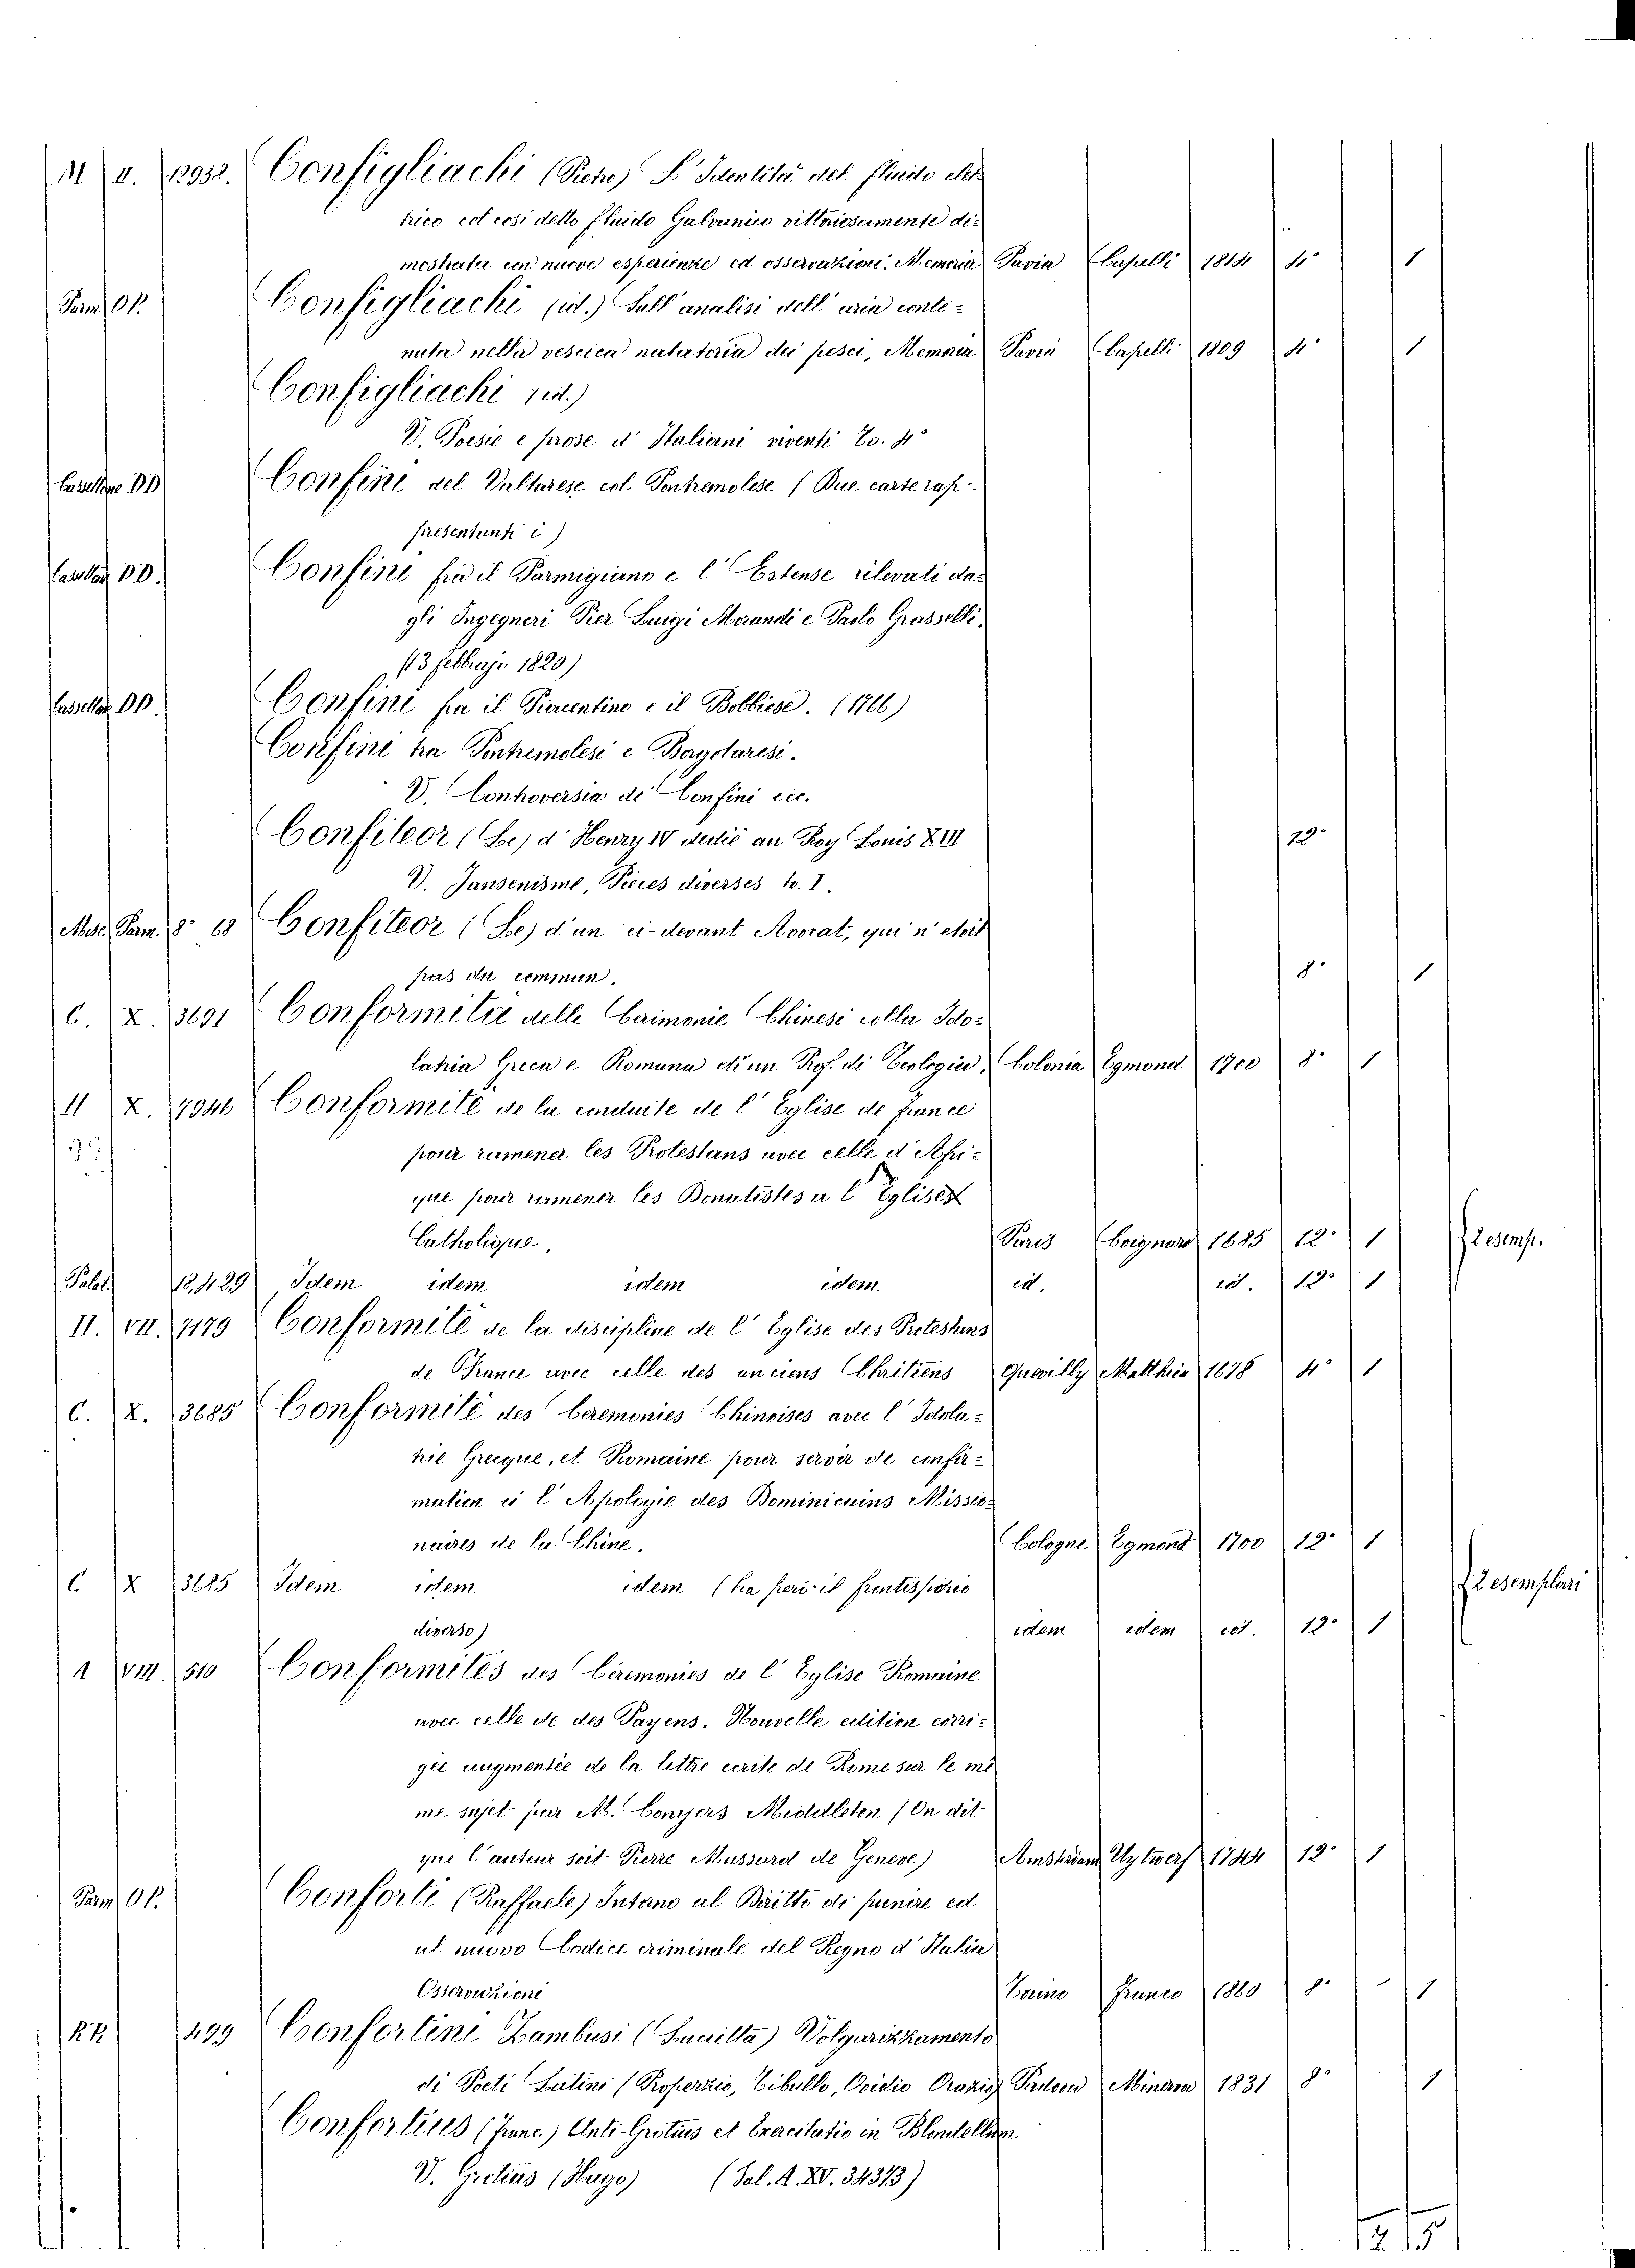 M II. 12932. Configliachi (Pietro) L'Identità del fluido elet-
trico col così detto fluido Galvanico vittoriosamente di-
mostrata con nuove esperienze ed osservazioni. Memoria Pavia Capelli 1814 4° 1
Parm. OP. Configliachi (id.) Sull'analisi dell'aria conte-
nuta nella vescica natatoria dei pesci, Memoria Pavia Capelli 1809 4° 1
Configliachi (id.)
V. Poesie e prose d'Italiani viventi To. 4°
DD Confine del Valtarese col Pontremolese (Due carte rap-
presentanti i)
DD. Confini fra il Parmigiano e l'Estense rilevati da-
gli Ingegneri Pier Luigi Morandi e Paolo Grasselli.
(13 febbrajo 1820)
DD. Confini fra il Piacentino e il Bobbiese. (1766)
Confini tra Pontremolesi e Borgotaresi.
V. Controversia di Confini ecc.
Confiteor (Le) d'Henry IV dedié au Roy Louis XIII 12°
V. Jansenisme, Pièces diverses to. I.
Misc. Parm. 8° 68 Confiteor (Le) d'un ci-devant Avocat, qui n'etoit
pas du commun. 8° 1
C. X. 3691 Conformità delle Cerimonie Chinesi colla Ido-
latria Greca e Romana di un Prof. di Teologia, Colonia Egmond 1700 8° 1
II X. 7946 Conformité de la conduite de l'Eglise de france
pour ramener les Protestans avec celle d'Afri-
que pour ramener les Donatistes a l'Eglise
Catholique. Paris Coignard 1685 12° 1 2 esemp.
Palat. 12,429 Idem idem idem idem id. id. 12° 1
II. VII. 7179 Conformité de la discipline de l'Eglise des Protestans
de France avec celle des anciens Chritiens Quevilly Malthein 1678 4° 1
C. X. 3685 Conformité des Ceremonies Chinoises avec l'Idola-
trie Grecque, et Romaine pour servir de confir-
mation à l'Apologie des Dominicains Missio-
naires de la Chine. Cologne Egmond 1700 12° 1
C X 3685 Idem idem idem (ha però il frontispizio 2 esemplari
diverso) idem idem id. 12° 1
A VIII. 510 Conformités des Cèremonies de l'Eglise Romaine
avec celle de des Payens. Nouvelle edition corri-
gée augmentée de la lettre ecrite de Rome sur le mê
me sujet par M. Conyers Middleton (On dit
que l'auteur soit Pierre Mussard de Geneve) Amstrdam Uytwerf 1744 12° 1
Parm. OP. Conforti (Raffaele) Intorno al Diritto di punire ed
al nuovo Codice criminale del Regno d'Italia
Osservazioni Torino Franco 1860 8° 1
RR 499 Confortini Zambusi (Lucilla) Volgarizzamento
di Poeti Latini (Properzio, Tibullo, Ovidio Orazio) Padova Minerva 1831 8° 1
Confortius (Franc.) Anti-Grotius et Exercitatio in Blondellum
V. Grotius (Hugo) (Sal. A. XV. 34373)